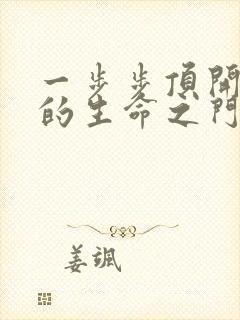 一步步頂開
的生命之門
姜颯